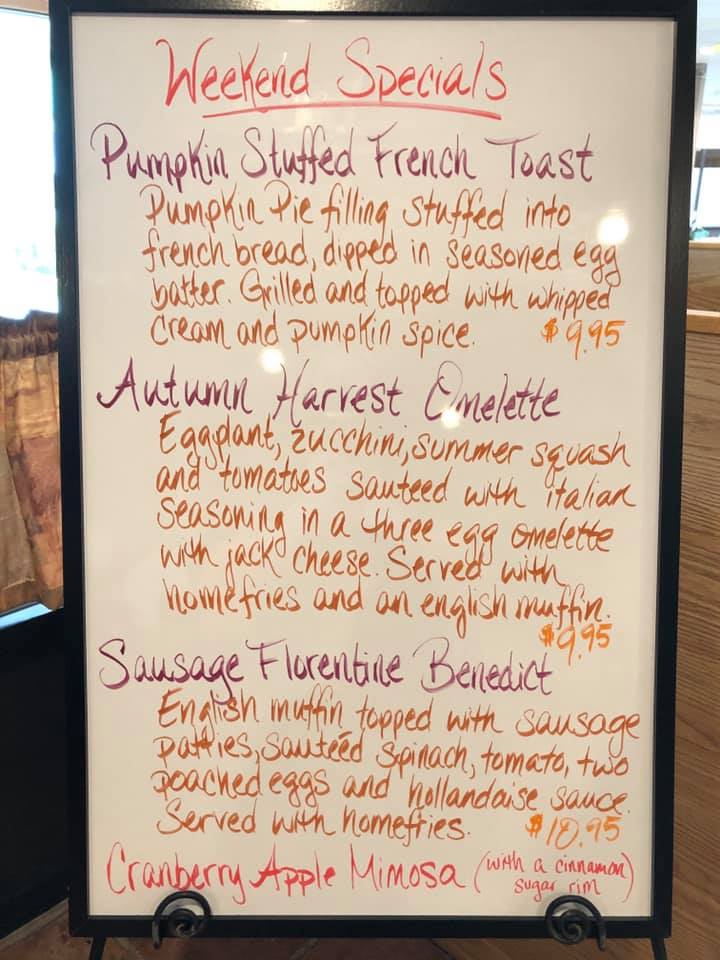 Weekend Specials
Pumpkin Stuffed French Toast
Pumpkin Pie filling stuffed into
french bread, dipped in seasoned egg
batter. Grilled and topped with whipped
cream and pumpkin spice. $9.95
Autumn Harvest Omelette
Eggplant, zucchini, summer squash
and tomatoes sauteed with italian
seasoning in a three egg omelette
with jack cheese. Served with
homefries and an english muffin.
$9.95
Sausage Florentine Benedict
English muffin topped with sausage
patties, sauteéd spinach, tomato, two
poached eggs and hollandaise sauce.
Served with homefries. $10.95
Cranberry Apple Mimosa (with a cinnamon
sugar rim)